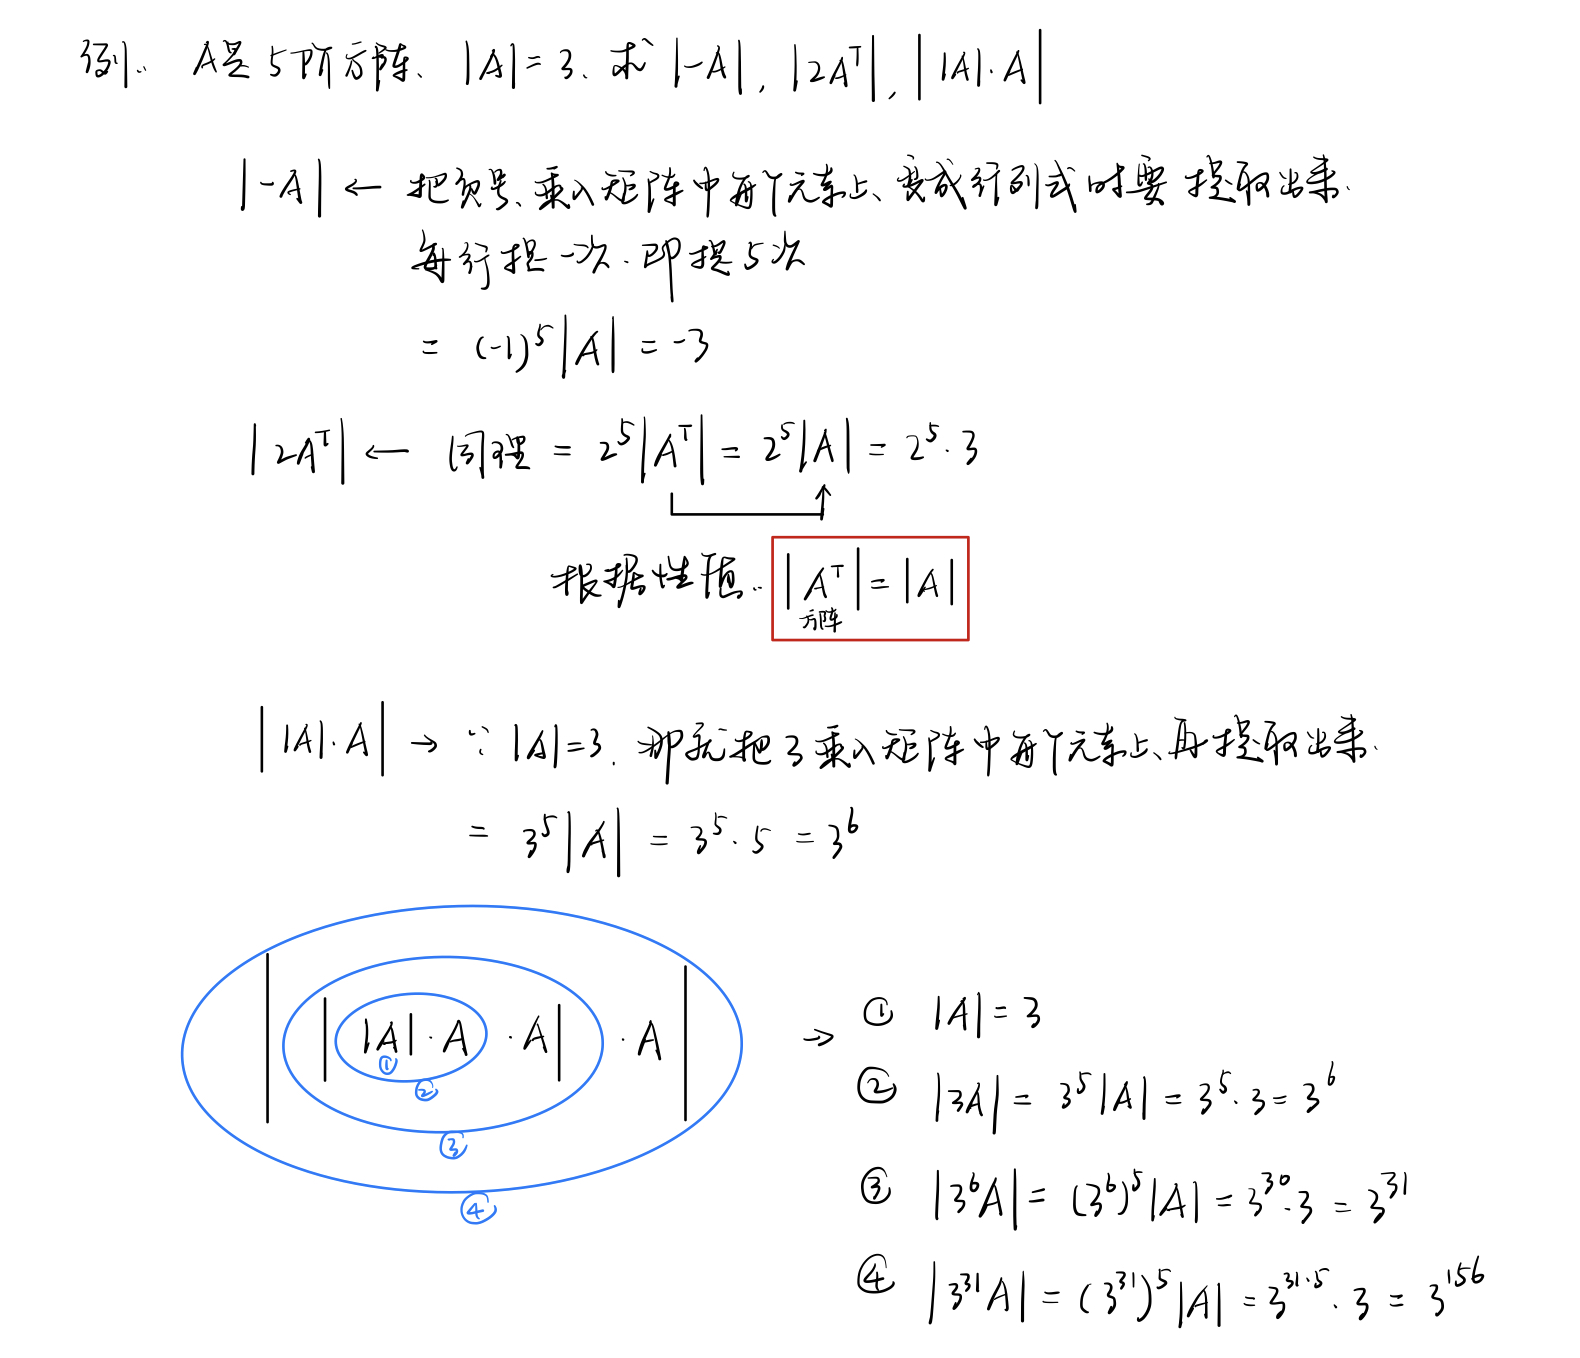 例:. A是5阶方阵、|A|=3、求 |-A|, |2Aᵀ|, ||A|·A|
|-A| ← 把负号、乘入矩阵中每个元素上、变成行列式时要提取出来.
每行提一次.即提5次
= (-1)⁵|A| = -3
|2Aᵀ| ← 同理 = 2⁵|Aᵀ| = 2⁵|A| = 2⁵·3
根据性质:. |Aᵀ| = |A|
方阵
||A|·A| → ∵ |A|=3. 那就把3乘入矩阵中每个元素上、再提取出来.
= 3⁵|A| = 3⁵·5 = 3⁶
| | |A|·A ·A| ·A |
①
②
③
④
→ ① |A| = 3
② |3A| = 3⁵|A| = 3⁵·3 = 3⁶
③ |3⁶A| = (3⁶)⁵|A| = 3³⁰·3 = 3³¹
④ |3³¹A| = (3³¹)⁵|A| = 3³¹·⁵·3 = 3¹⁵⁶